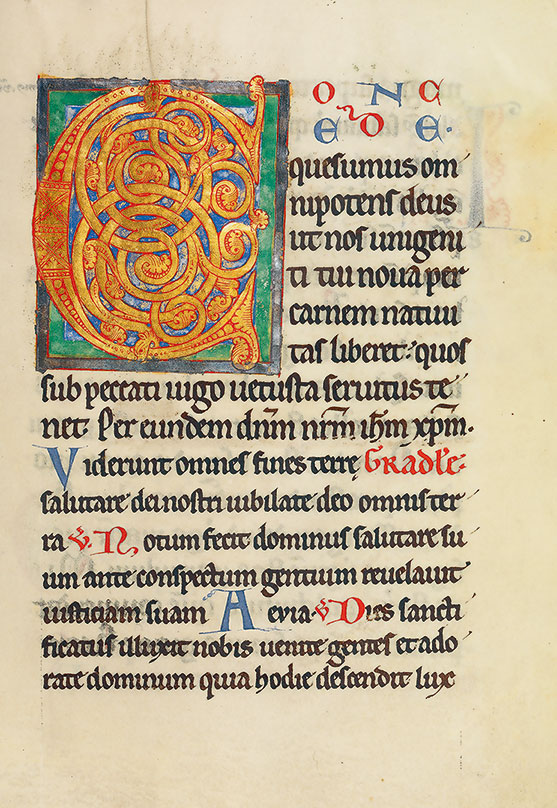 C O N C
E D E ·
quesumus om
nipotens deus
ut nos unigeni
ti tui noua per
carnem natiui
tas liberet· quos
sub peccati iugo uetusta seruitus te
net· Per eundem dn̄m nr̄m ih̄m xp̄m·
Viderunt omnes fines terrę Gradłe·
salutare dei nostri iubilate deo omnis ter
ra V̇· Notum fecit dominus salutare su
um ante conspectum gentium reuelauit
iusticiam suam Aeuia· V̇ Dies sancti
ficatus illuxit nobis uenite gentes et ado
rate dominum quia hodie descendit lux